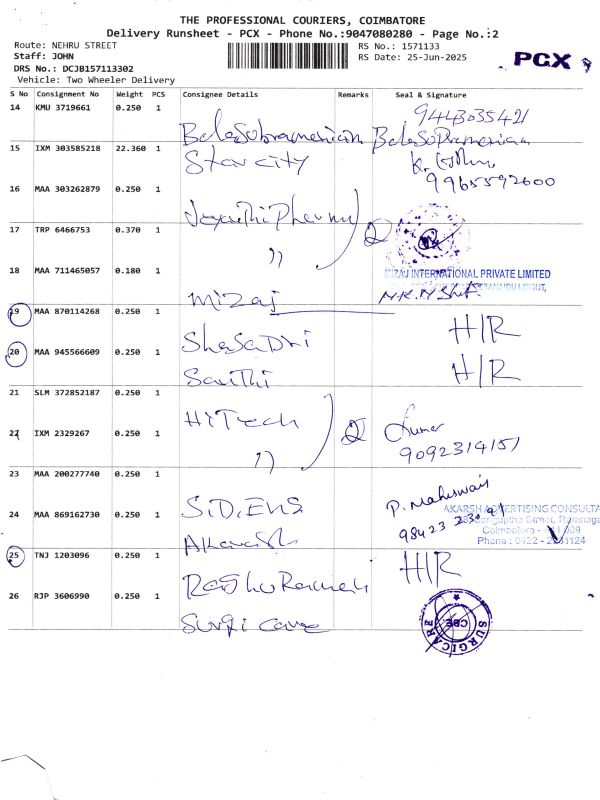 THE PROFESSIONAL COURIERS, COIMBATORE
Delivery Runsheet - PCX - Phone No.:9047080280 - Page No.:2
Route: NEHRU STREET
RS No.: 1571133
PCX
Staff: JOHN
RS Date: 25-Jun-2025
DRS No.: DCJB157113302
Vehicle: Two Wheeler Delivery
S No Consignment No Weight PCS Consignee Details Remarks Seal & Signature
14 KMU 3719661 0.250 1 9443035421
BalaSubramanian
15 IXM 303585218 22.360 1 Star city K.
9965592600
16 MAA 303262879 0.250 1
Jayanthi Pharmy
17 TRP 6466753 0.370 1 "
18 MAA 711465057 0.180 1 MIZAJ INTERNATIONAL PRIVATE LIMITED
Mizaj
19 MAA 870114268 0.250 1 H/R
ShaSaDri
20 MAA 945566609 0.250 1 H/R
Santhi
21 SLM 372852187 0.250 1
HiTech
22 IXM 2329267 0.250 1 9092314151
"
23 MAA 200277740 0.250 1 P. Maheswari
S.D.ENS
24 MAA 869162730 0.250 1 AKARSH ADVERTISING CONSULTA
Coimbatore
Phone : 0422 -
25 TNJ 1203096 0.250 1 H/R
RaghuRamah
26 RJP 3606990 0.250 1 SURGICARE CBE
Surgi care